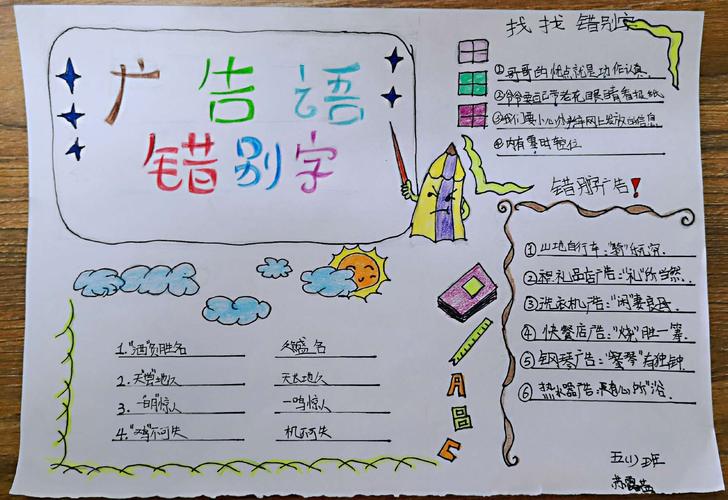 广告语
错别字
找找错别字
①哥哥的优点就是功作认真.
②爷爷要自己带老花眼睛看报纸
③我们要小心分辨网上发放的信息
④内有零时
错别字广告！
①山地自行车:"骑"乐无穷.
②礼品店广告:"礼"所当然.
③洗衣机广告:"闲"妻良母.
④快餐店广告:"烧"胜一筹.
⑤钢琴广告:"琴"有独钟
⑥热水器广告:随心所"浴
1."酒"负胜名
盛名
2.天"尝"地久
天长地久
3.一"明"惊人
一鸣惊人
4."鸡"不可失
机不可失
五(1)班